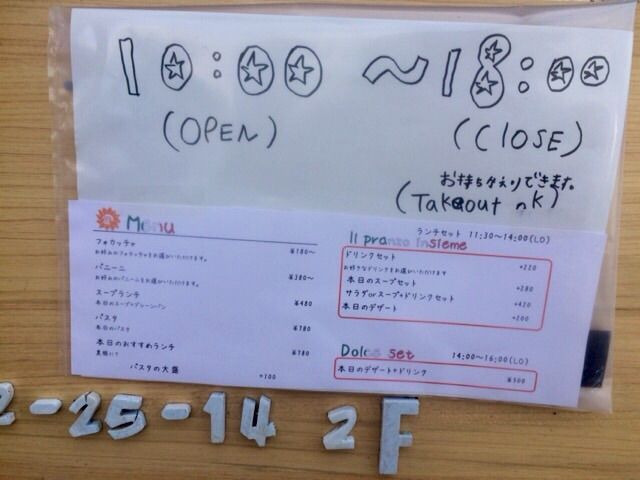 10:00 ~ 18:00
(OPEN) (ClOSE)
お持ちかえりできます。
(Takeout OK)
Menu
フォカッチャ ¥180～
お好みのフォカッチャをお選びいただけます。
パニーニ ¥380～
お好みのパニーニをお選びいただけます。
スープランチ ¥480
本日のスープ+プレーンパン
パスタ ¥780
本日のパスタ
本日のおすすめランチ ¥780
パスタの大盛 +100
ランチセット 11:30~14:00(LO)
Il pranzo insieme
ドリンクセット +220
お好きなドリンクをお選びいただけます
本日のスープセット +280
サラダorスープ+ドリンクセット +420
本日のデザート +200
Dolce set 14:00~16:00(LO)
本日のデザート+ドリンク ¥500
2-25-14 2F